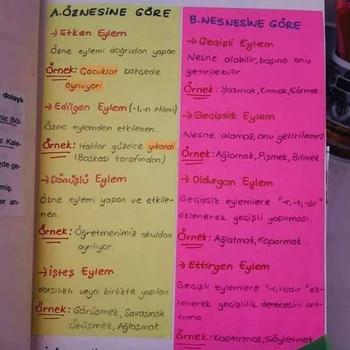 A. ÖZNESİNE GÖRE
→ Etken Eylem
Özne eylemi doğrudan yapan
Örnek: Çocuklar bahçede
oynuyor.
→ Edilgen Eylem (-l,-n ekleri)
Özne eylemden etkilenen.
Örnek: Halılar güzelce yıkandı.
(Başkası tarafından)
→ Dönüşlü Eylem
Özne eylemi yapan ve etkile-
nen.
Örnek: Öğretmenimiz okuldan
ayrılıyor.
→ İşteş Eylem
Karşılıklı veya birlikte yapılan
Örnek: Görüşmek, Savaşmak
Ötüşmek, Ağlaşmak
B. NESNESİNE GÖRE
→ Geçişli Eylem
Nesne alabilir, başına onu
getirilebilir.
Örnek: Yazmak, Kırmak, Görmek..
→ Geçişsiz Eylem
Nesne alamaz, onu getirilemez
Örnek: Ağlamak, Pişmek, Bitmek..
→ Oldurgan Eylem
Geçişsiz eylemlere "-r,-t,-dır"
eklenerek geçişli yapılması.
Örnek: Ağlatmak, Koparmak..
→ Ettirgen Eylem
Geçişli eylemlere "-r,-t,-dır" ek-
lenerek geçişlilik derecesini art-
tırma.
Örnek: Kaptırmak, Söyletmek
dolaylı
niz Böl-
z Kale-
mış.
er an-